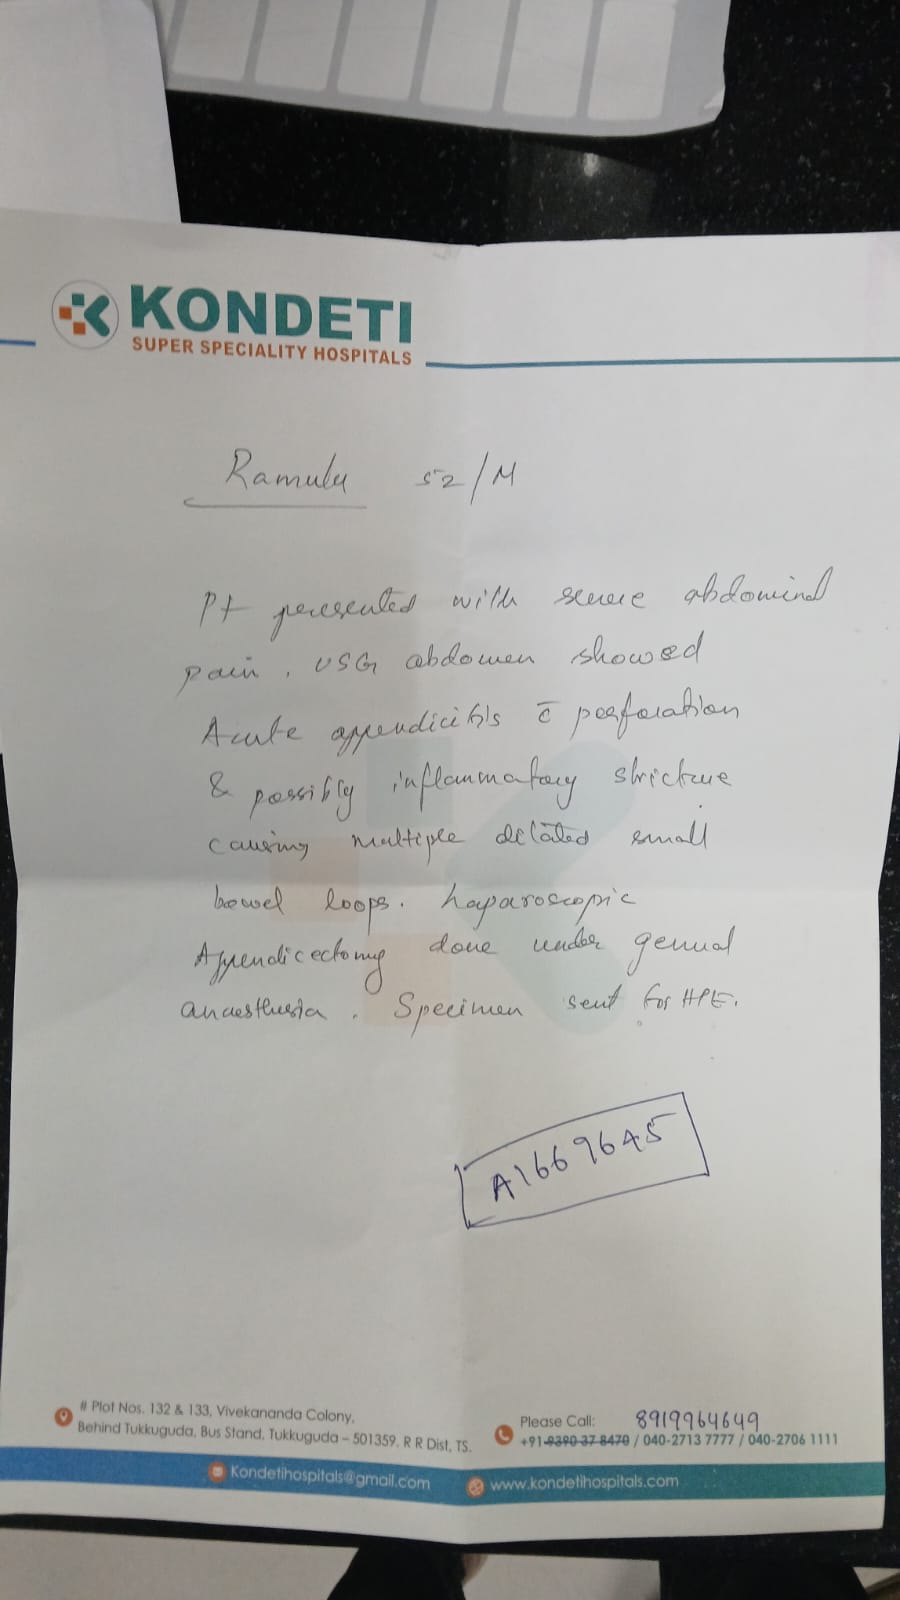 KONDETI
SUPER SPECIALITY HOSPITALS
Ramulu 52/M
Pt presented with severe abdominal
pain. USG abdomen showed
Acute appendicitis c̄ perforation
& possibly inflammatory stricture
causing multiple dilated small
bowel loops. Laparoscopic
Appendicectomy done under general
anaesthesia. Specimen sent for HPE.
A1669645
# Plot Nos. 132 & 133, Vivekananda Colony,
Behind Tukkuguda, Bus Stand, Tukkuguda – 501359. R R Dist, TS.
Please Call: 8919964649
+91-9390 37 8470 / 040-2713 7777 / 040-2706 1111
Kondetihospitals@gmail.com
www.kondetihospitals.com